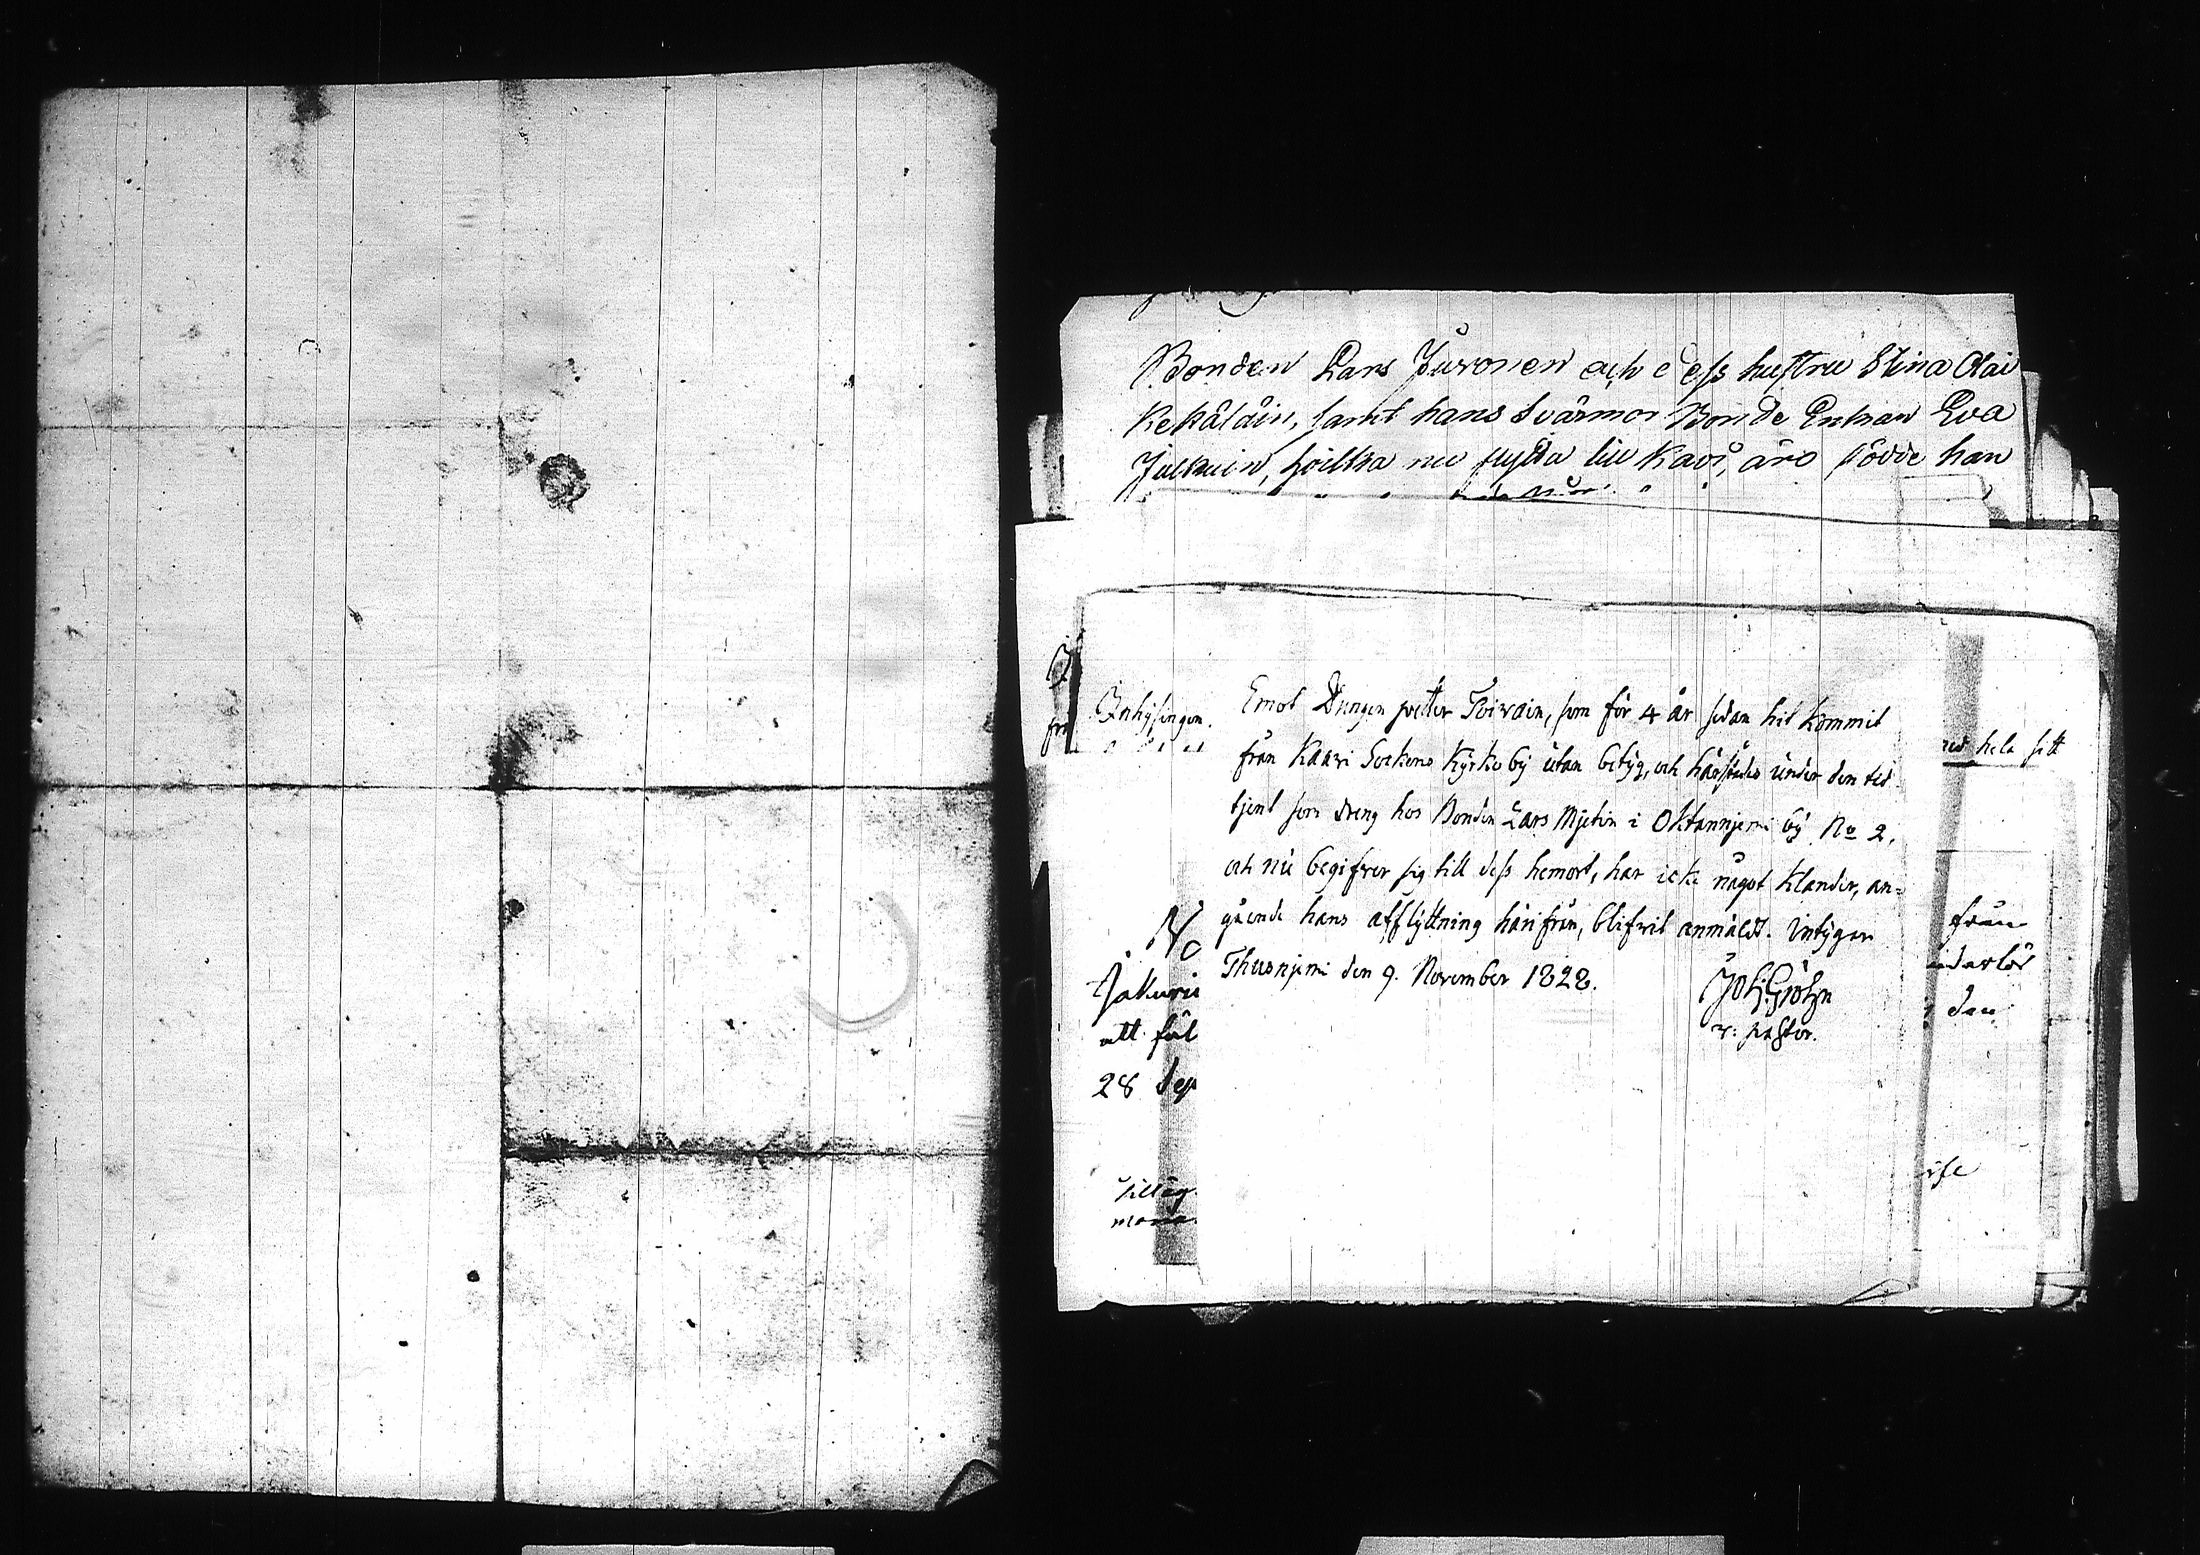 Bonden Lars Juvonen och dess hustru Stina Olai
Kekäläin, samt hans Svärmor Bonde Enkan Eva
Julkuin, hvilka nu flytta till Kavi, äro födde han
Inhysingen
Emot Drengen petter Toivain, som för 4 år sedan hit kommit
från Kaavi Sockens Kyrko by utan betyg, och härstädes under den tid
tjent som dreng hos Bonden Lars Mjetin i Oktannjemi by No 2,
och nu begifver sig till dess hemort, har icke något klander, an=
gående hans afflyttning härifrån, blifvit anmäldt. Intygar
Thusnjemi den 9. November 1828.
Joh: Gröhn
v: pastor.
hela sitt
No
från
den
att
28 Sep